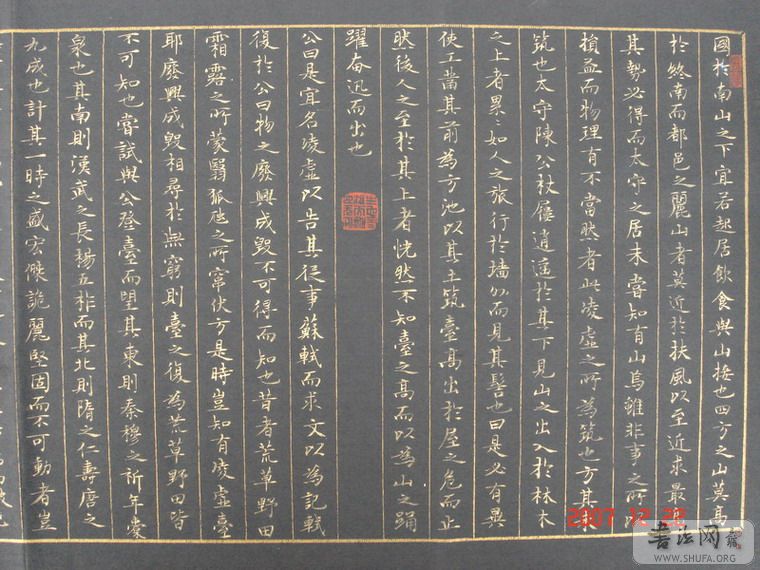 國於南山之下宜若起居飲食與山接也四方之山莫高
於終南而都邑之麗山者莫近於扶風以至近求最
其勢必得而太守之居未嘗知有山焉雖非事之所以
損益而物理有不當然者此凌虛之所為筑也方其未
筑也太守陳公杖屨逍遙於其下見山之出入於林木
之上者累々如人之旅行於墻外而見其髻也曰是必有異
使工鑿其前為方池以其土筑臺高出於屋之危而止
然後人之至於其上者恍然不知臺之高而以為山之踊
躍奮迅而出也
公曰是宜名凌虛以告其從事蘇軾而求文以為記軾
復於公曰物之廢興成毀不可得而知也昔者荒草野田
霜露之所蒙翳狐虺之所竄伏方是時豈知有凌虛臺
耶廢興成毀相尋於無窮則臺之復為荒草野田皆
不可知也嘗試與公登臺而望其東則秦穆之祈年橐
泉也其南則漢武之長楊五柞而其北則隋之仁壽唐之
九成也計其一時之盛宏傑詭麗堅固而不可動者豈
2007 12 22
书法网
WWW.SHUFA.ORG